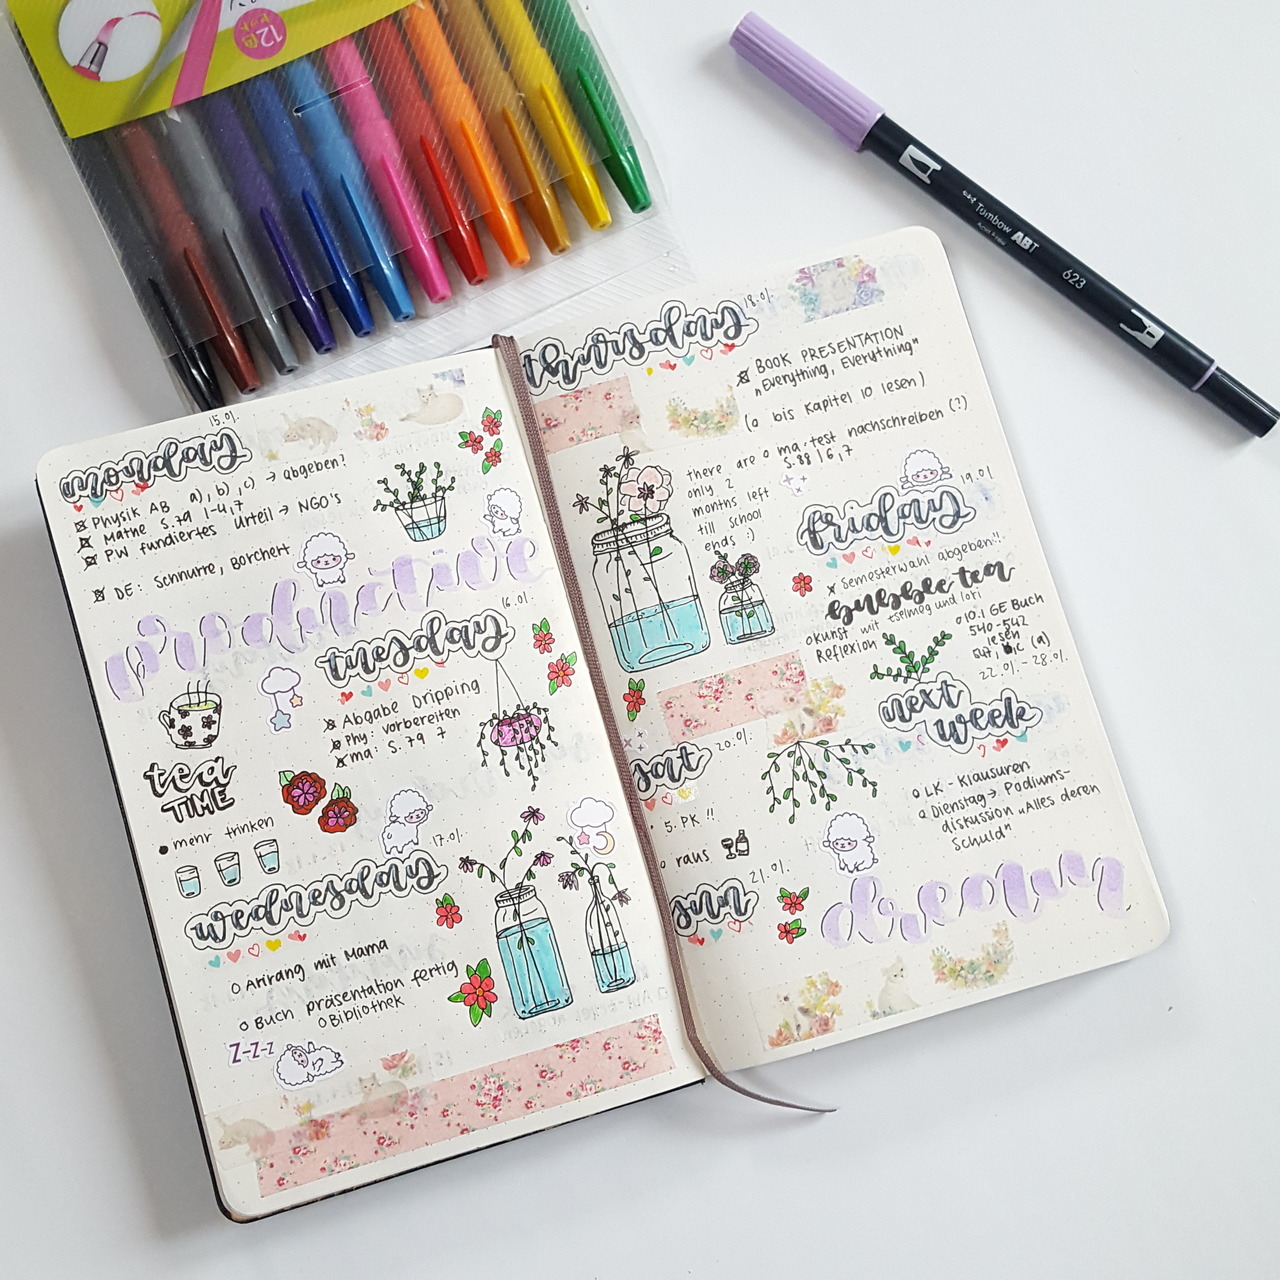 12色
Tombow ABT
623
15.01.
monday
Physik AB a), b), c) → abgeben?
Mathe S.79 1-4,7
PW fundiertes Urteil → NGO's
DE: Schnurre, Borchert
productive
16.01.
tuesday
Abgabe Dripping
Phy: vorbereiten
ma: S.79 7
tea
TIME
mehr trinken
17.01.
wednesday
Arirang mit Mama
Buch präsentation fertig
Bibliothek
Z-Z-Z
thursday
18.01.
BOOK PRESENTATION
„Everything, Everything"
(o bis Kapitel 10 lesen)
o ma-test nachschreiben (?)
S.88 | 6,7
there are
only 2
months left
till school
ends :)
19.01.
friday
Semesterwahl abgeben!!
bubble tea
mit tselmeg und lori
o Kunst
Reflexion
o 10.1 GE Buch
540-542
lesen
(a)
22.01.-28.01.
next
week
o LK-Klausuren
o Dienstag → Podiums-
diskussion „Alles deren
Schuld"
sat
20.01.
5. PK !!
raus
21.01.
sun
dreamy